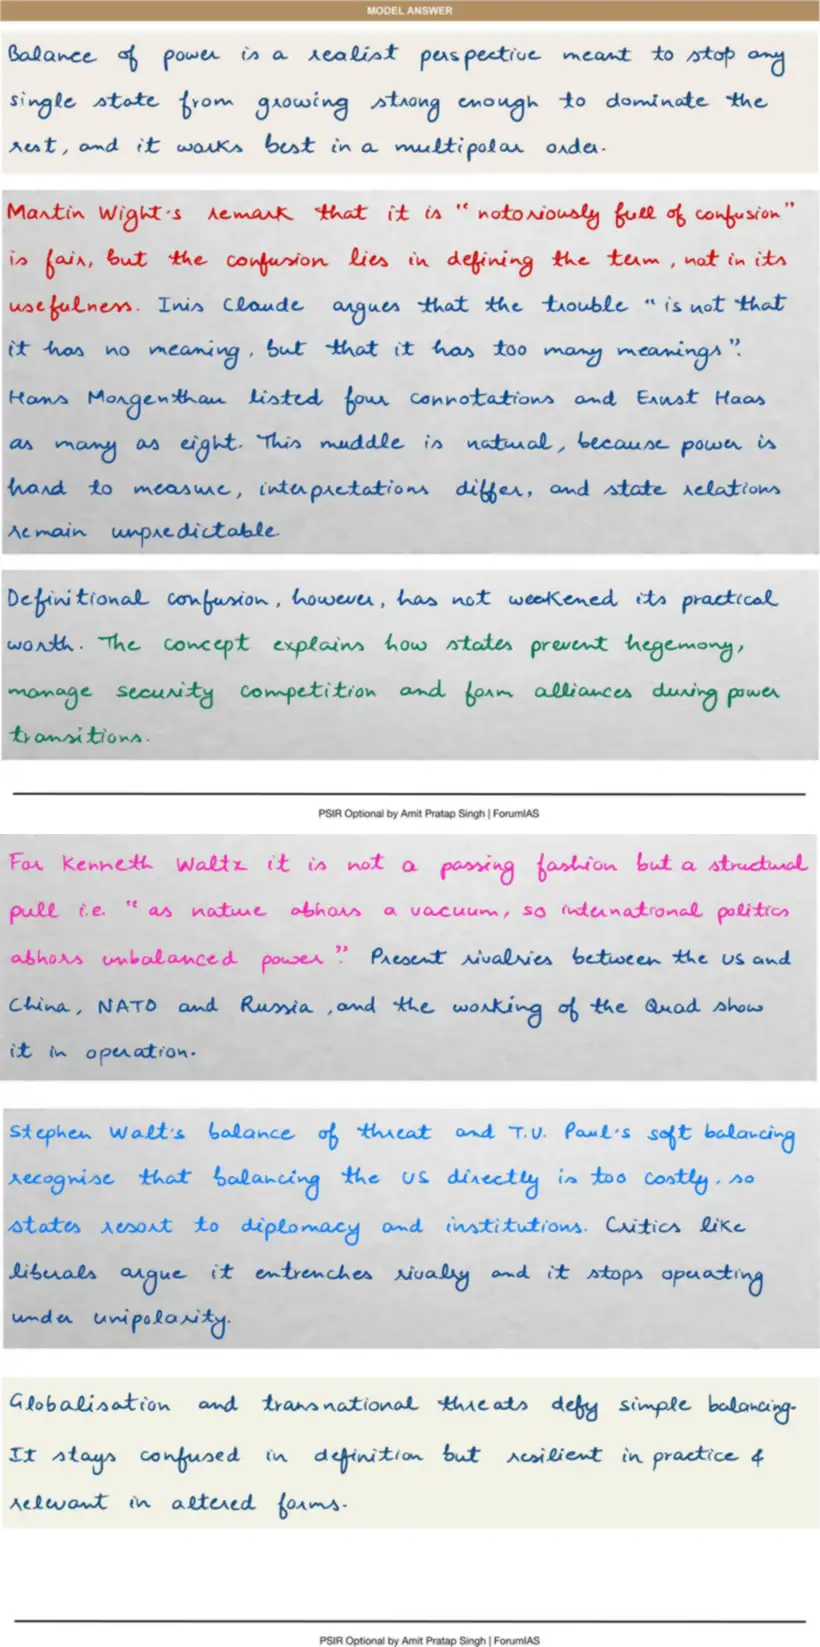 MODEL ANSWER
Balance of power is a realist perspective meant to stop any
single state from growing strong enough to dominate the
rest, and it works best in a multipolar order.
Martin Wight's remark that it is "notoriously full of confusion"
is fair, but the confusion lies in defining the term, not in its
usefulness. Inis Claude argues that the trouble "is not that
it has no meaning, but that it has too many meanings".
Hans Morgenthau listed four connotations and Ernst Haas
as many as eight. This muddle is natural, because power is
hard to measure, interpretations differ, and state relations
remain unpredictable
Definitional confusion, however, has not weakened its practical
worth. The concept explains how states prevent hegemony,
manage security competition and form alliances during power
transitions.
PSIR Optional by Amit Pratap Singh | ForumIAS
For Kenneth Waltz it is not a passing fashion but a structural
pull i.e. "as nature abhors a vacuum, so international politics
abhors unbalanced power". Present rivalries between the US and
China, NATO and Russia, and the working of the Quad show
it in operation.
Stephen Walt's balance of threat and T.V. Paul's soft balancing
recognise that balancing the US directly is too costly, so
states resort to diplomacy and institutions. Critics like
liberals argue it entrenches rivalry and it stops operating
under unipolarity.
Globalisation and transnational threats defy simple balancing.
It stays confused in definition but resilient in practice &
relevant in altered forms.
PSIR Optional by Amit Pratap Singh | ForumIAS